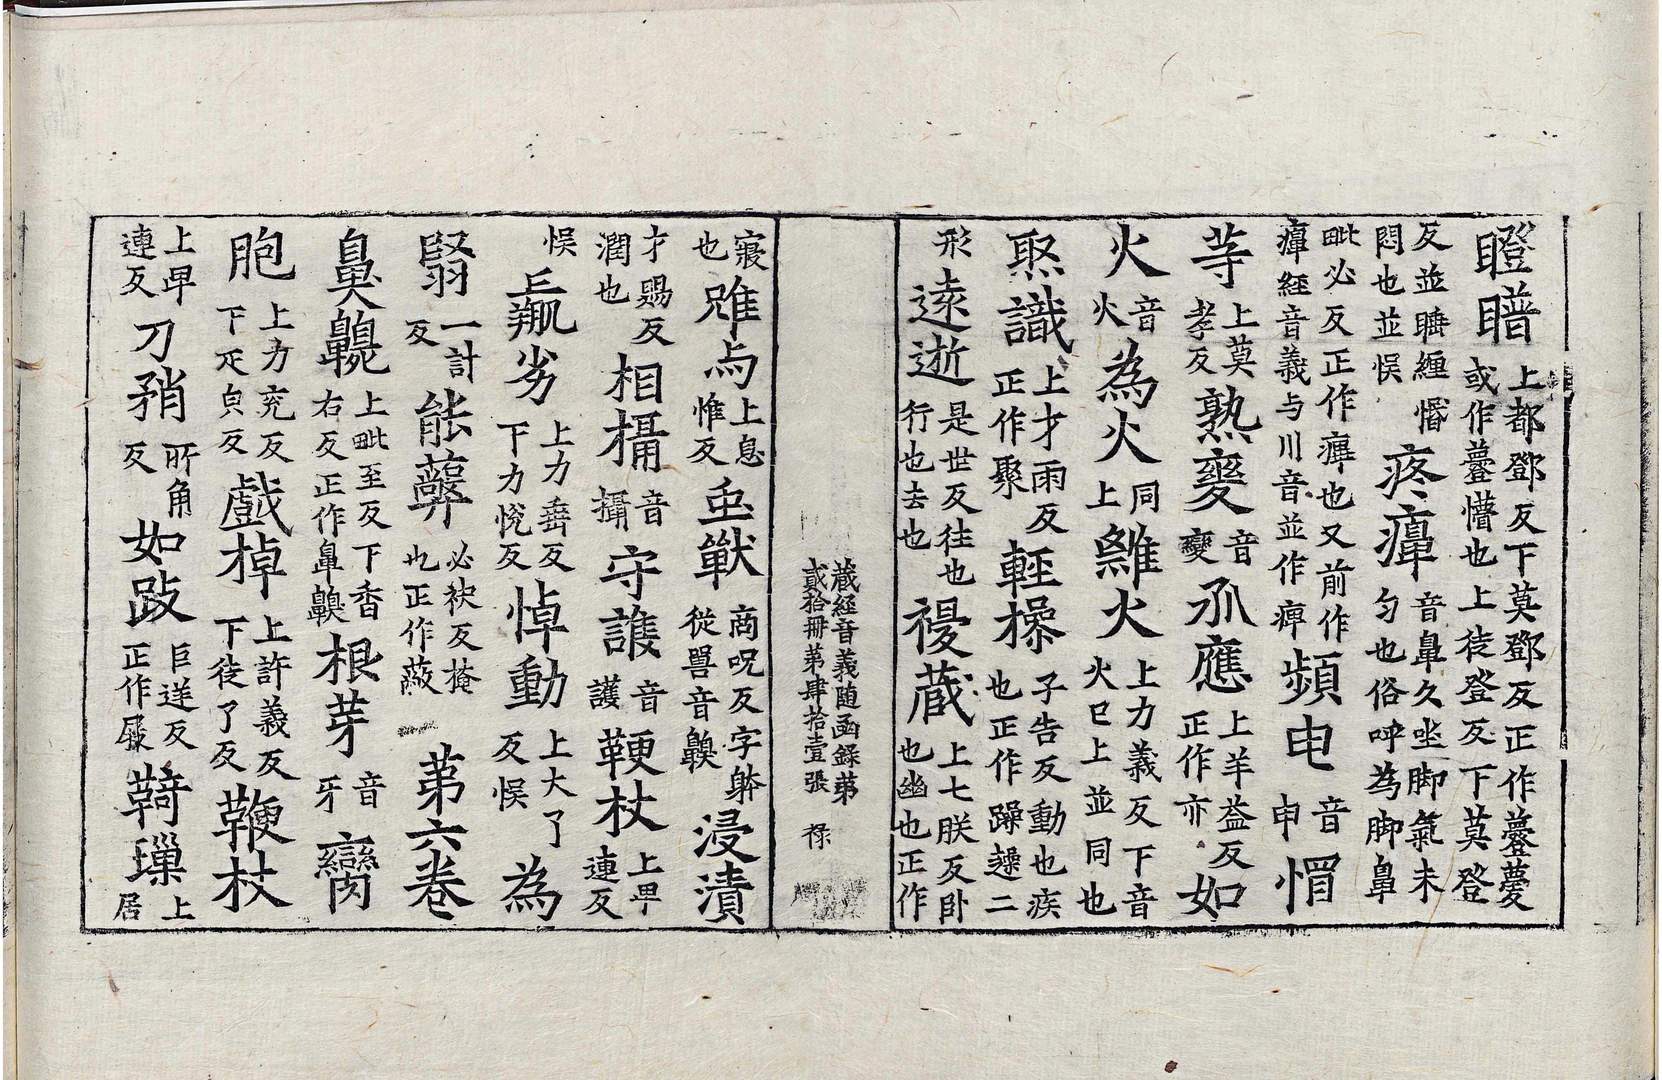 瞪瞢上都鄧反下莫鄧反正作䠬䠢或作䒅懵也上徒登反下莫登
反並睡緾㥫悶也並悮疼㾱音鼻久坐脚氣未勻也俗呼為脚鼻
毗必反正作痺也又前作㾱經音義与川音並作㾱頻申音申惛
䒳上莫孝反熟變音變㶨應上羊益反正作亦如
火音火為火同上雖火上力義反下音火巳上並同也
聚識上才雨反正作聚輕操子告反動也疾也正作躁趮二
形遠逝是世反往也行也去也寑蔵上七朕反卧也幽也正作
藏經音義随函錄第貳拾冊第肆拾壹張 祿
寑也雖与上息惟反䖝獸商呪反字躰從嘼音齅浸漬
才賜反潤也相攝音攝守護音護鞭杖上卑連反
悮羸劣上力垂反下力恱反悼動上大了反悮為
翳一計反能蔽必袂反掩也正作蔽 第六卷
鼻齅上毗至反下香右反正作鼻齅根芽音牙臠
胞上力兖反下疋皃反戲掉上許義反下徒了反鞭杖
上卑連反刀矟所角反如䟦巨逆反正作屐鞿璅上居